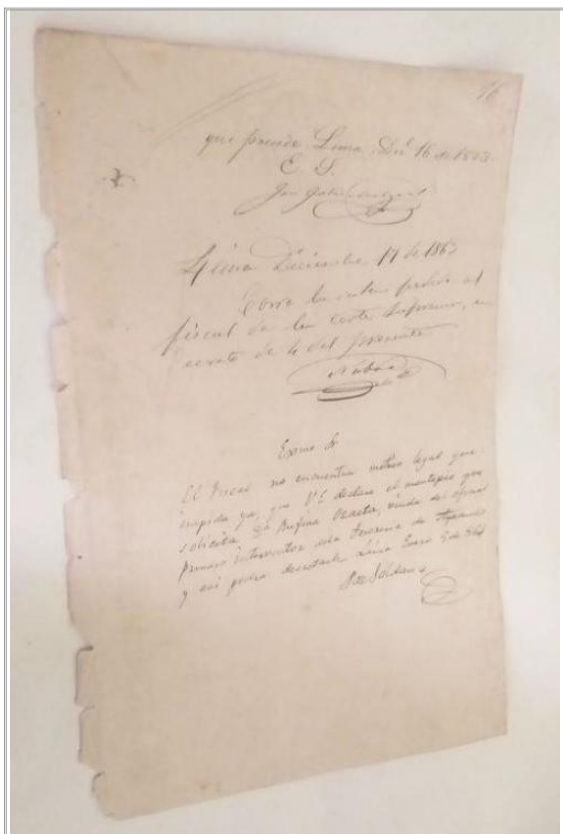 16
que precede. Lima Dic. 16 de 1863.
E. S.
José
Lima Diciembre 17 de 1863
Corra la vista pedida al
fiscal de la Corte Suprema, en
decreto de 4 del presente
Exmo Sr
El Fiscal no encuentra motivo legal que
impida ya, que V E declare el montepio que
solicita Da Rufina viuda del oficial
primero interventor dela Tesoreria de Ayacucho
y asi podrá decretarlo Lima Enero 5 de 864